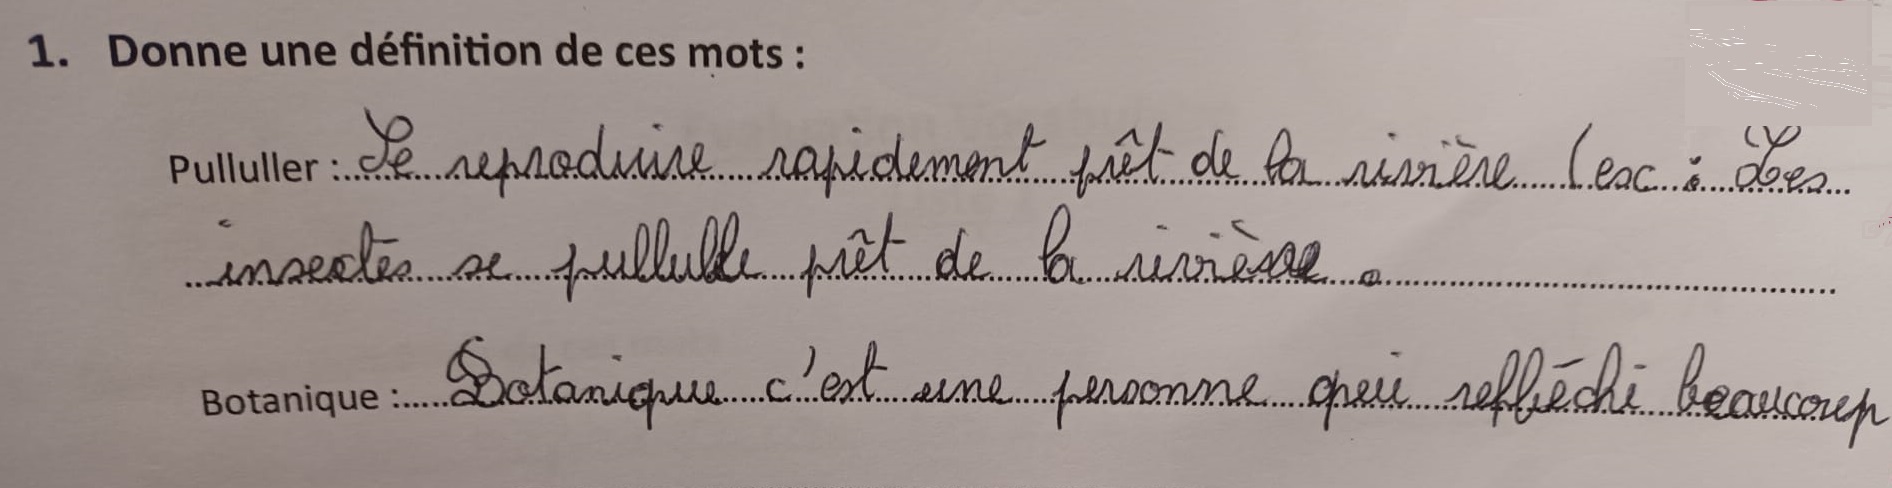 1. Donne une définition de ces mots :
Pulluller : Se reproduire rapidement prêt de la rivière (esc : Les
insectes se pullulle prêt de la rivière.
Botanique : Botanique c'est une personne queii refléchi beaucoup